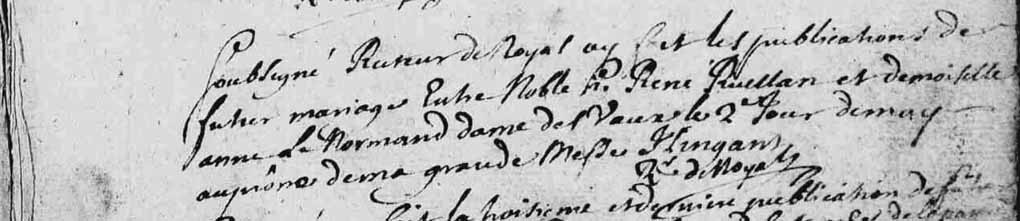 Soubsigné Recteur de Noyal ay fait les publications de
futur mariage Entre Noble h. René Ruellan et demoiselle
anne Le Normand dame des Vaux le 2e Jour de may
au prône de ma grande Messe J Lingan
Rr. de Noyal
fait la troisieme et derniere publication de